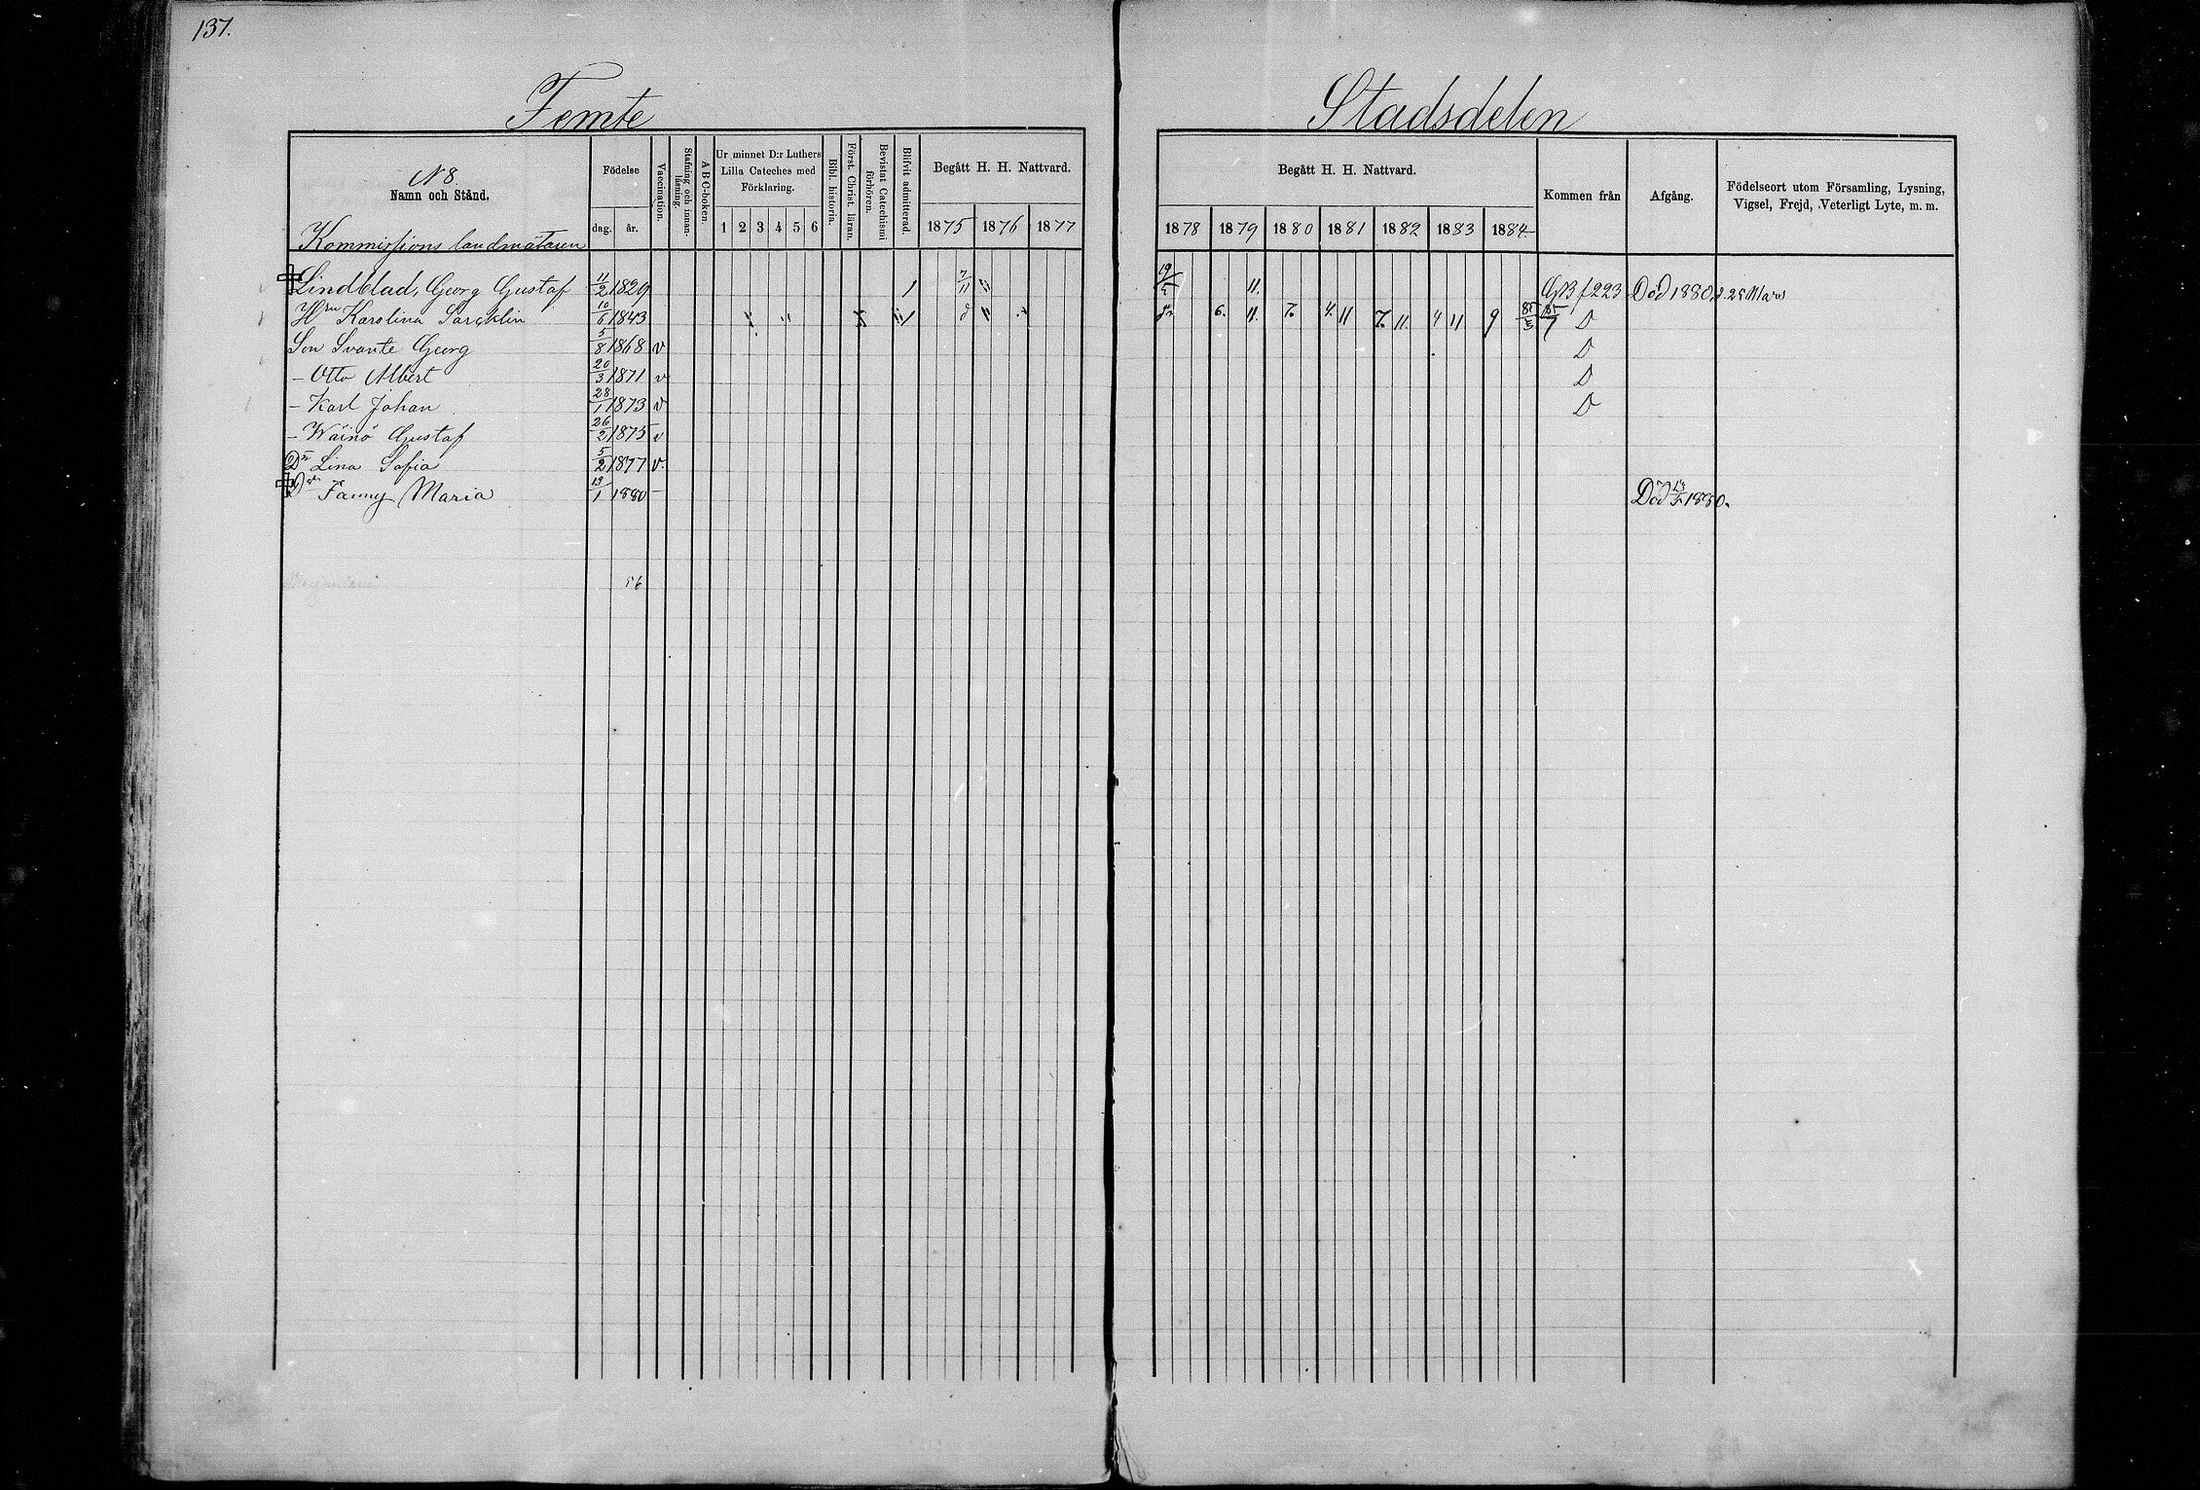 137.
Femte Stadsdelen
N 8.
Namn och Stånd.
Födelse
dag. år.
Vaccination.
Stafning och innanläsning.
A B C-boken.
Ur minnet D:r Luthers Lilla Cateches med Förklaring.
1 2 3 4 5 6
Bibl. historia.
Först. Christ. läran.
Bevistat Catechismi förhören.
Blifvit admitterad.
Begått H. H. Nattvard.
1875 1876 1877
Begått H. H. Nattvard.
1878 1879 1880 1881 1882 1883 1884
Kommen från
Afgång.
Födelseort utom Församling, Lysning, Vigsel, Frejd, Veterligt Lyte, m. m.
Kommissions landmätaren
Lindblad, Georg Gustaf 11/2 1829 1 7/11 11. GB f 223 Död 1880 d. 25 Mars
Hru Karolina 10/6 1843 6. 11. 7. 4. 11 7. 11. 4 11 9 D
Son Svante Georg 5/8 1868 v D
– Otto Albert 20/3 1871 v D
– Karl Johan 28/1 1873 v D
– Wäinö Gustaf 26/2 1875 v
Dr Lina Sofia 5/2 1877 v.
Dr Fanny Maria 13/1 1880 – Död 1880.
56